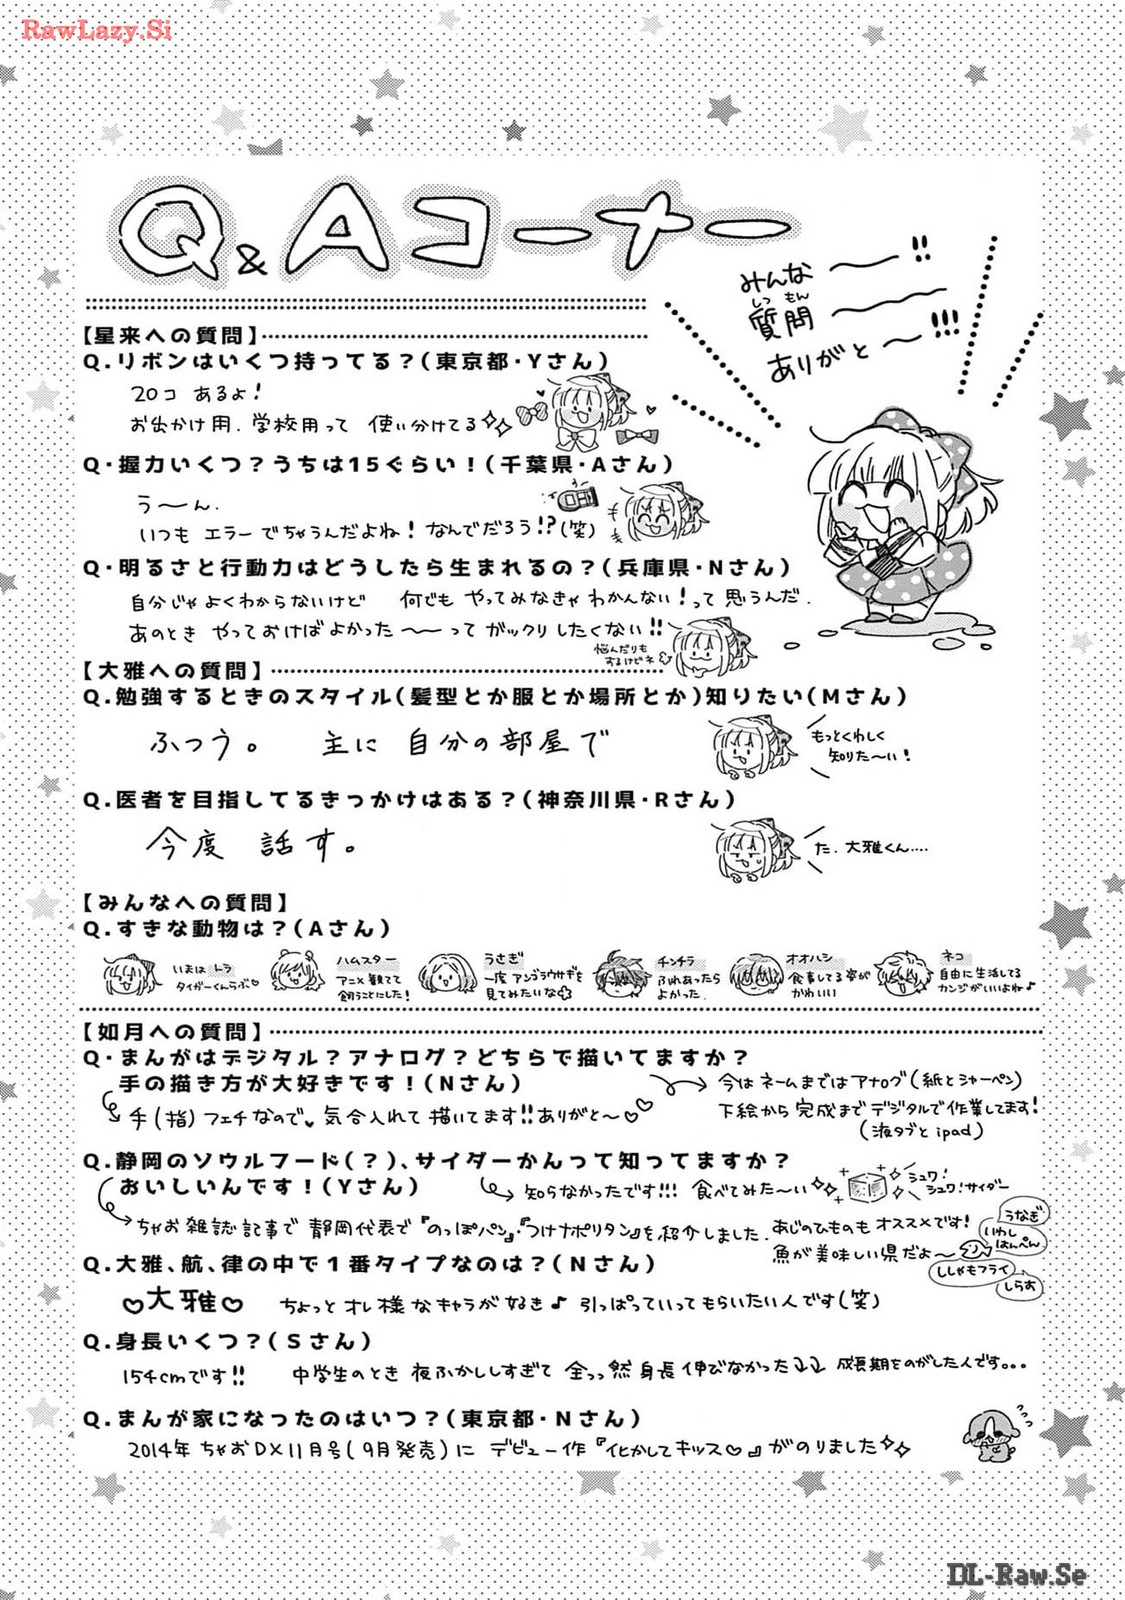 RawLazy.Si
Q&Aコーナー
みんな〜!!
質問〜
しつもん
ありがと〜!!!
【星来への質問】
Q.リボンはいくつ持ってる?(東京都・Yさん)
20コ あるよ!
お出かけ用、学校用って 使い分けてる
Q・握力いくつ?うちは15ぐらい!(千葉県・Aさん)
う〜ん、
いつも エラーでちゃうんだよね! なんでだろう!?(笑)
Q・明るさと行動力はどうしたら生まれるの?(兵庫県・Nさん)
自分じゃよくわからないけど 何でも やってみなきゃ わかんない!って思うんだ.
あのとき やっておけばよかった〜〜って ガックリしたくない!!
悩んだりも
するけどネ
【大雅への質問】
Q.勉強するときのスタイル(髪型とか服とか場所とか)知りたい(Mさん)
ふつう。 主に 自分の部屋で
もっとくわしく
知りた〜い!
Q.医者を目指してるきっかけはある?(神奈川県・Rさん)
今度 話す。
た、大雅くん....
【みんなへの質問】
Q.すきな動物は?(Aさん)
いまは トラ
タイガーくんらぶ♡
ハムスター
アニメ観てて
飼うことにした!
うさぎ
一度 アンゴラウサギを
見てみたいな
チンチラ
ふれあったら
よかった.
オオハシ
食事してる姿が
かわいい
ネコ
自由に生活してる
カンジがいいよね♪
【如月への質問】
Q・まんがはデジタル?アナログ?どちらで描いてますか?
手の描き方が大好きです!(Nさん)
今は ネームまではアナログ(紙とシャーペン)
下絵から 完成まで デジタルで作業してます!
(液タブと ipad)
手(指)フェチなので♥ 気合入れて 描いてます!!ありがと〜♡♡
Q.静岡のソウルフード(?)、サイダーかんって知ってますか?
おいしいんです!(Yさん)
知らなかったです!!! 食べてみた〜い
シュワ!
シュワ!サイダー
ちゃお雑誌記事で 静岡代表で『のっぽパン』・『つけナポリタン』を紹介しました.
あじのひものも オススメです!
魚が美味しい県だよ〜
うなぎ
いわし
はんぺん
ししゃもフライ
しらす
Q.大雅、航、律の中で1番タイプなのは?(Nさん)
♡大雅♡ ちょっとオレ様なキャラが好き♪ 引っぱっていってもらいたい人です(笑)
Q.身長いくつ?(Sさん)
154cmです!! 中学生のとき 夜ふかししすぎて 全っっ然 身長 伸びなかった↓↓ 成長期をのがした人です。。。
Q.まんが家になったのはいつ?(東京都・Nさん)
2014年 ちゃおDX11月号(9月発売)に デビュー作『化かしてキッス♡』がのりました
DL-Raw.Se